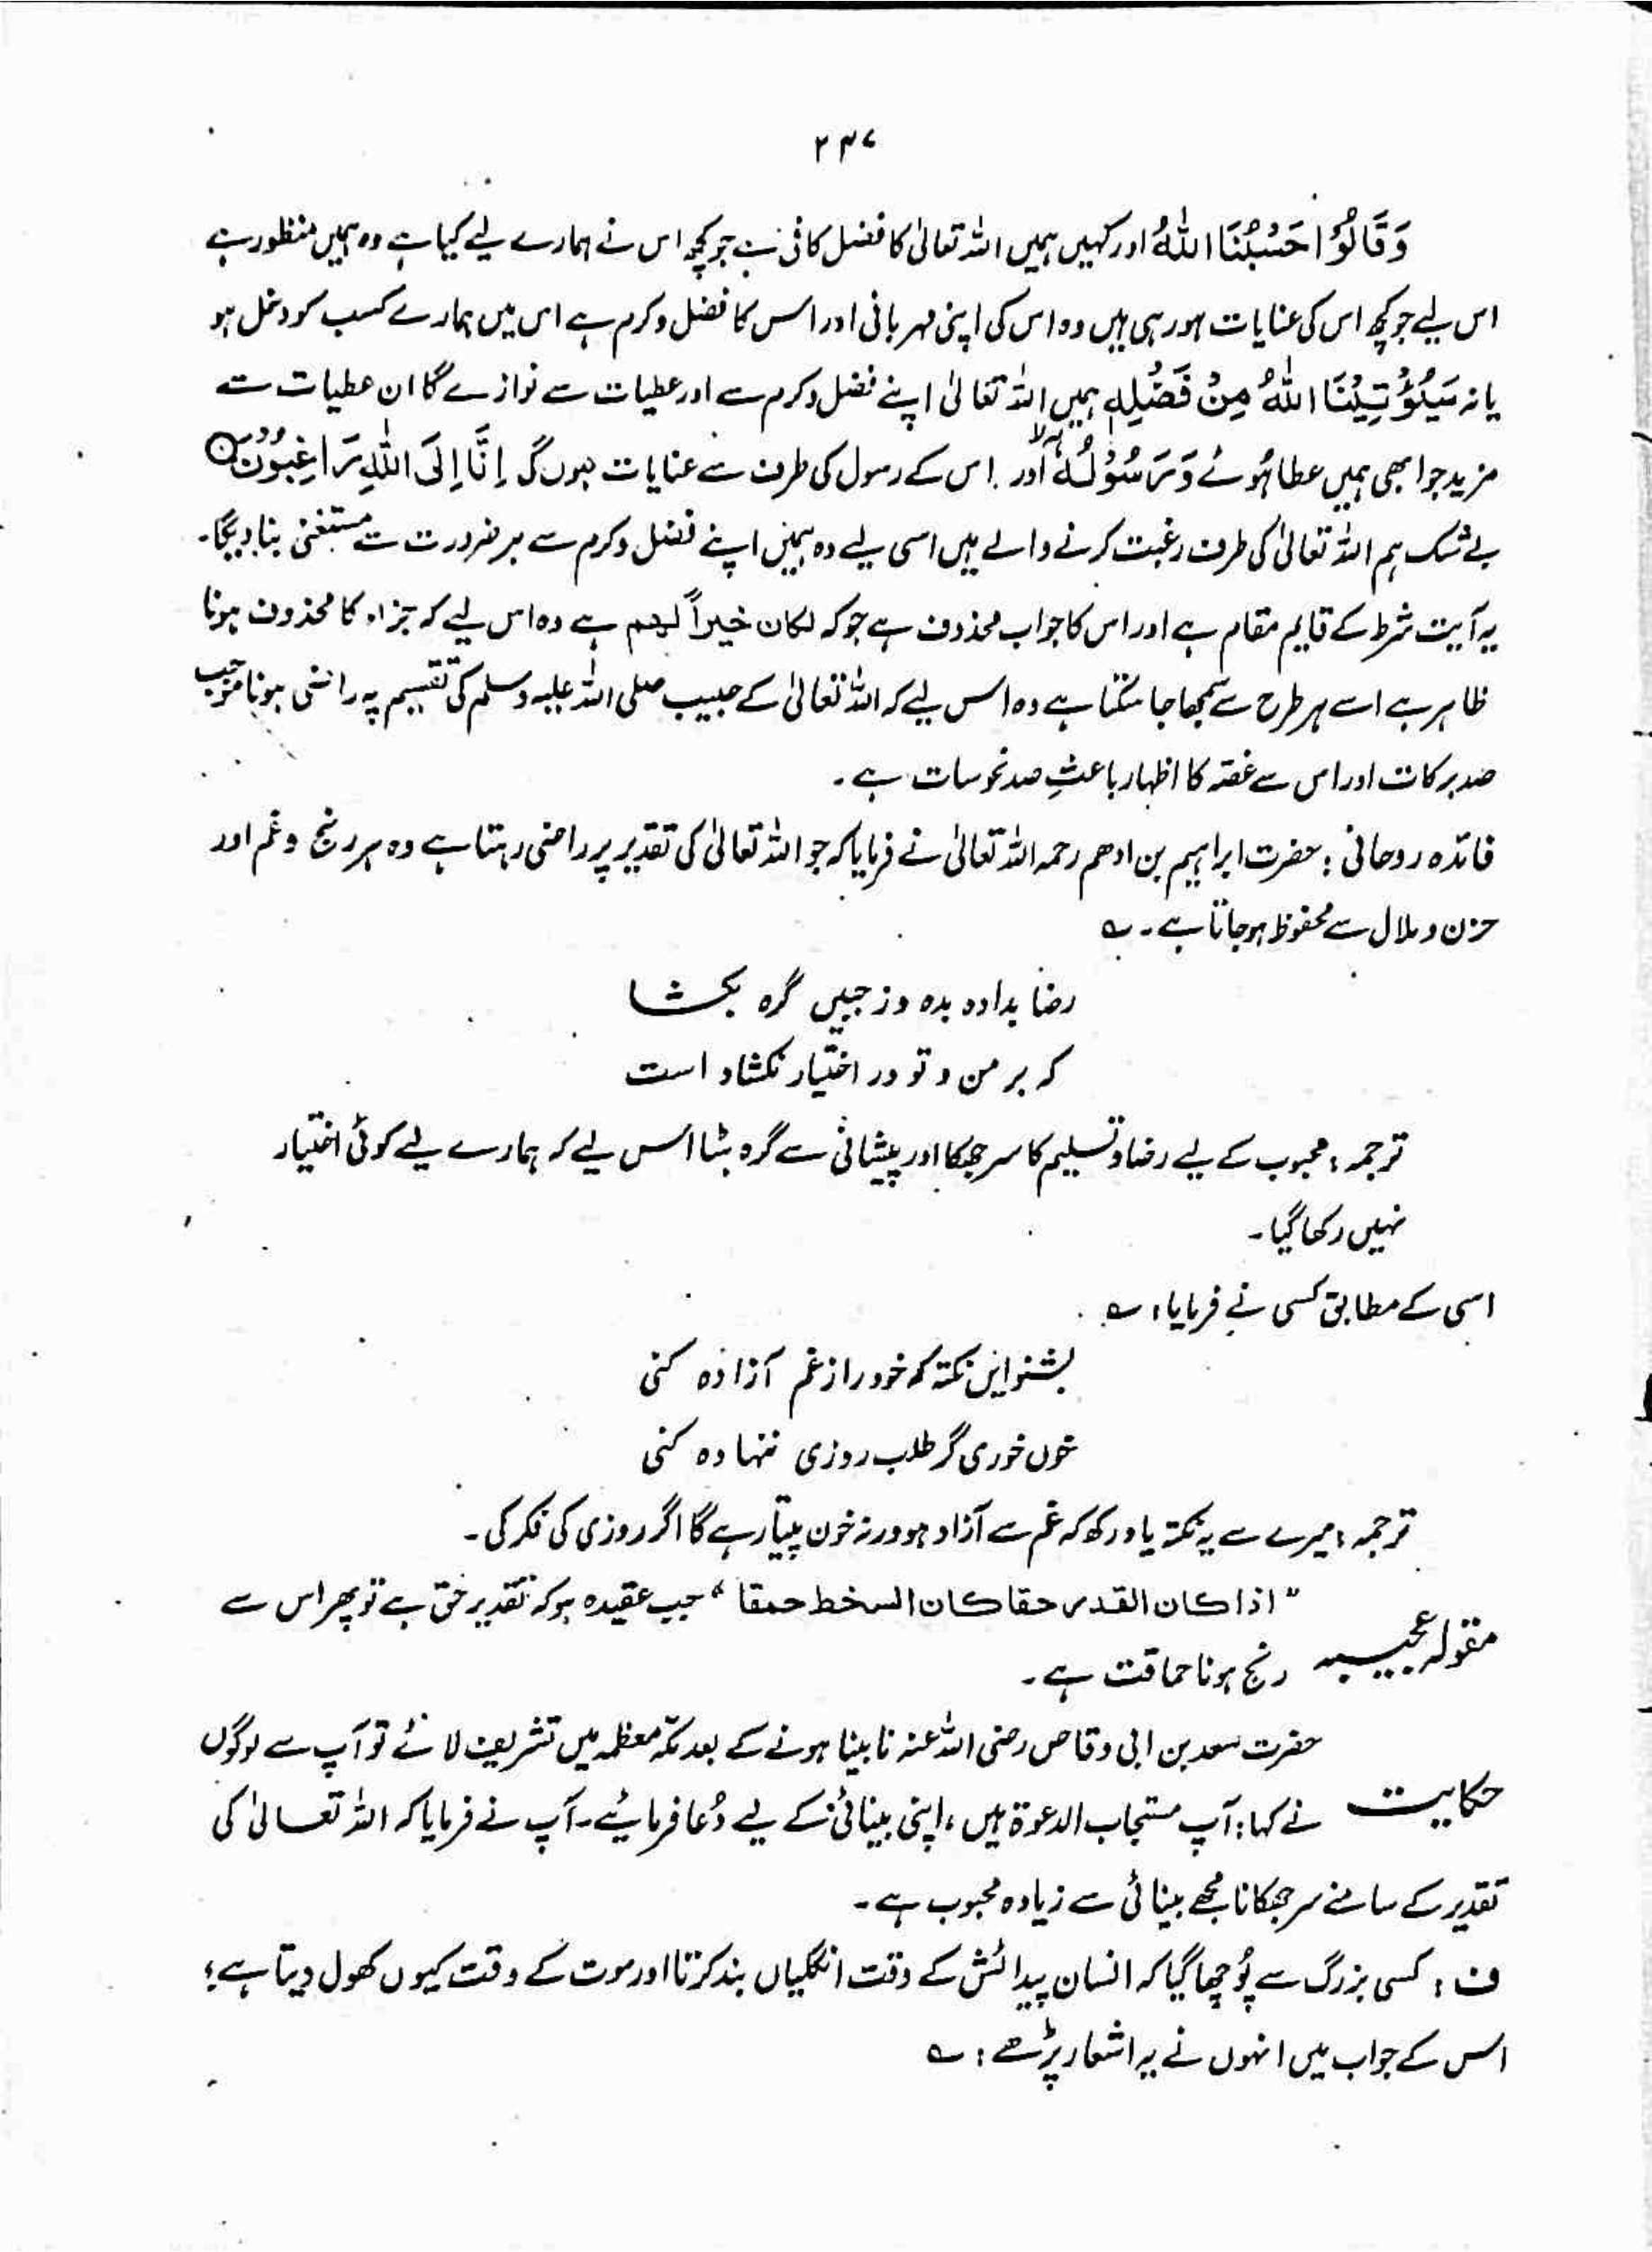 ۲۳۷
وَقَالُوْا حَسْبُنَا اللّٰهُ اور کہیں ہمیں اللہ تعالیٰ کا فضل کافی ہے جو کچھ اس نے ہمارے لیے کیا ہے وہ ہمیں منظور ہے
اس لیے جو کچھ اس کی عنایات ہو رہی ہیں وہ اس کی اپنی مہربانی اور اس کا فضل و کرم ہے اس میں ہمارے کسب کو دخل ہو
یا نہ سَيُؤْتِيْنَا اللّٰهُ مِنْ فَضْلِهٖ ہمیں اللہ تعالیٰ اپنے فضل و کرم سے اور عطیات سے نوازے گا ان عطیات سے
مزید جو ابھی ہمیں عطا ہوئے وَرَسُوْلُهٗٓ ۙ اور اس کے رسول کی طرف سے عنایات ہوں گی اِنَّا اِلَى اللّٰهِ رَاغِبُوْنَ ۝
بے شک ہم اللہ تعالیٰ کی طرف رغبت کرنے والے ہیں اسی لیے وہ ہمیں اپنے فضل و کرم سے ہر ضرورت سے مستغنی بنا دیگا۔
یہ آیت شرط کے قایم مقام ہے اور اس کا جواب محذوف ہے جو کہ لکان خیراً لہم ہے وہ اس لیے کہ جزاء کا محذوف ہونا
ظاہر ہے اسے ہر طرح سے سمجھا جا سکتا ہے وہ اس لیے کہ اللہ تعالیٰ کے حبیب صلی اللہ علیہ وسلم کی تقسیم پہ راضی ہونا موجب
صد برکات اور اس سے غصہ کا اظہار باعثِ صد نحوسات ہے۔
فائدہ روحانی : حضرت ابراہیم بن ادھم رحمہ اللہ تعالیٰ نے فرمایا کہ جو اللہ تعالیٰ کی تقدیر پر راضی رہتا ہے وہ ہر رنج و غم اور
حزن و ملال سے محفوظ ہو جاتا ہے۔ ؎
رضا بدادہ بدہ وز جبیں گرہ بکشا
کہ بر من و تو در اختیار نکشاد است
ترجمہ : محبوب کے لیے رضا و تسلیم کا سر جھکا اور پیشانی سے گرہ ہٹا اس لیے کہ ہمارے لیے کوئی اختیار
نہیں رکھا گیا۔
اسی کے مطابق کسی نے فرمایا : ؎
بشنو ایں نکتہ کہ خود را ز غم آزادہ کنی
خوں خوری گر طلب روزی ننہادہ کنی
ترجمہ : میرے سے یہ نکتہ یاد رکھ کہ غم سے آزاد ہو ورنہ خون پیتا رہے گا اگر روزی کی فکر کی۔
"اذا کان القدر حقا کان السخط حمقا" جب عقیدہ ہو کہ تقدیر حق ہے تو پھر اس سے
مقولہ عجیبہ رنج ہونا حماقت ہے۔
حضرت سعد بن ابی وقاص رضی اللہ عنہ نابینا ہونے کے بعد مکہ معظمہ میں تشریف لائے تو آپ سے لوگوں
حکایت نے کہا : آپ مستجاب الدعوۃ ہیں ، اپنی بینائی کے لیے دُعا فرمائیے۔ آپ نے فرمایا کہ اللہ تعالیٰ کی
تقدیر کے سامنے سر جھکانا مجھے بینائی سے زیادہ محبوب ہے۔
ف : کسی بزرگ سے پُوچھا گیا کہ انسان پیدائش کے وقت انگلیاں بند کرتا اور موت کے وقت کیوں کھول دیتا ہے؟
اس کے جواب میں انہوں نے یہ اشعار پڑھے : ؎